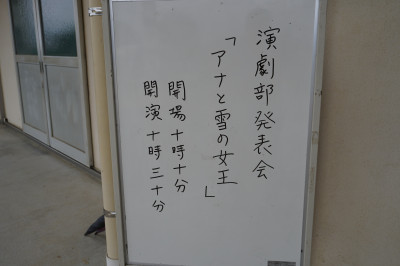 演劇部発表会
「アナと雪の女王」
開場十時十分
開演十時三十分